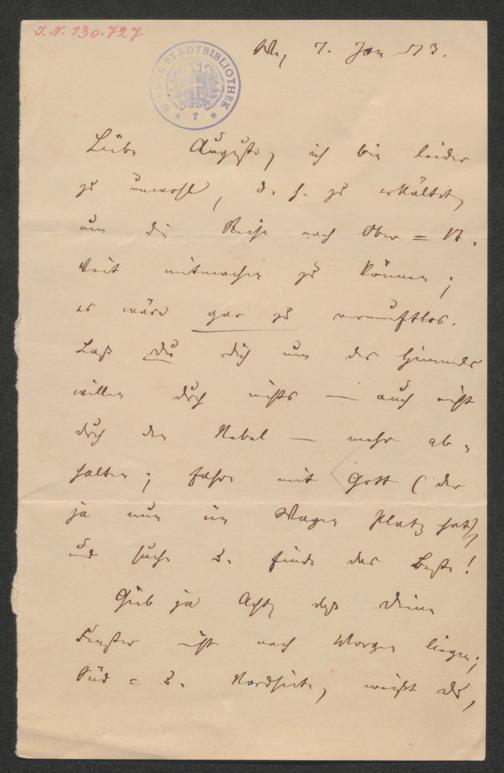 I.N. 130.727
WIENER STADTBIBLIOTHEK
7
7. Jan
Liebe Auguste, ich bin leider
zu unwohl, d. h. zu erkältet,
um die Reise nach Ober =
Veit mitmachen zu können;
es wäre gar zu vernunftlos.
Laß du dich um des Himmels
willen durch nichts — auch nicht
durch den Nebel — mehr ab =
halten; fahre mit Gott (der
ja nun im Wagen Platz hat)
und suche u. finde das Beste!
Gieb ja Acht, daß deine
Fenster nicht nach Morgen liegen;
Süd = u. Nordseite, weißt du,